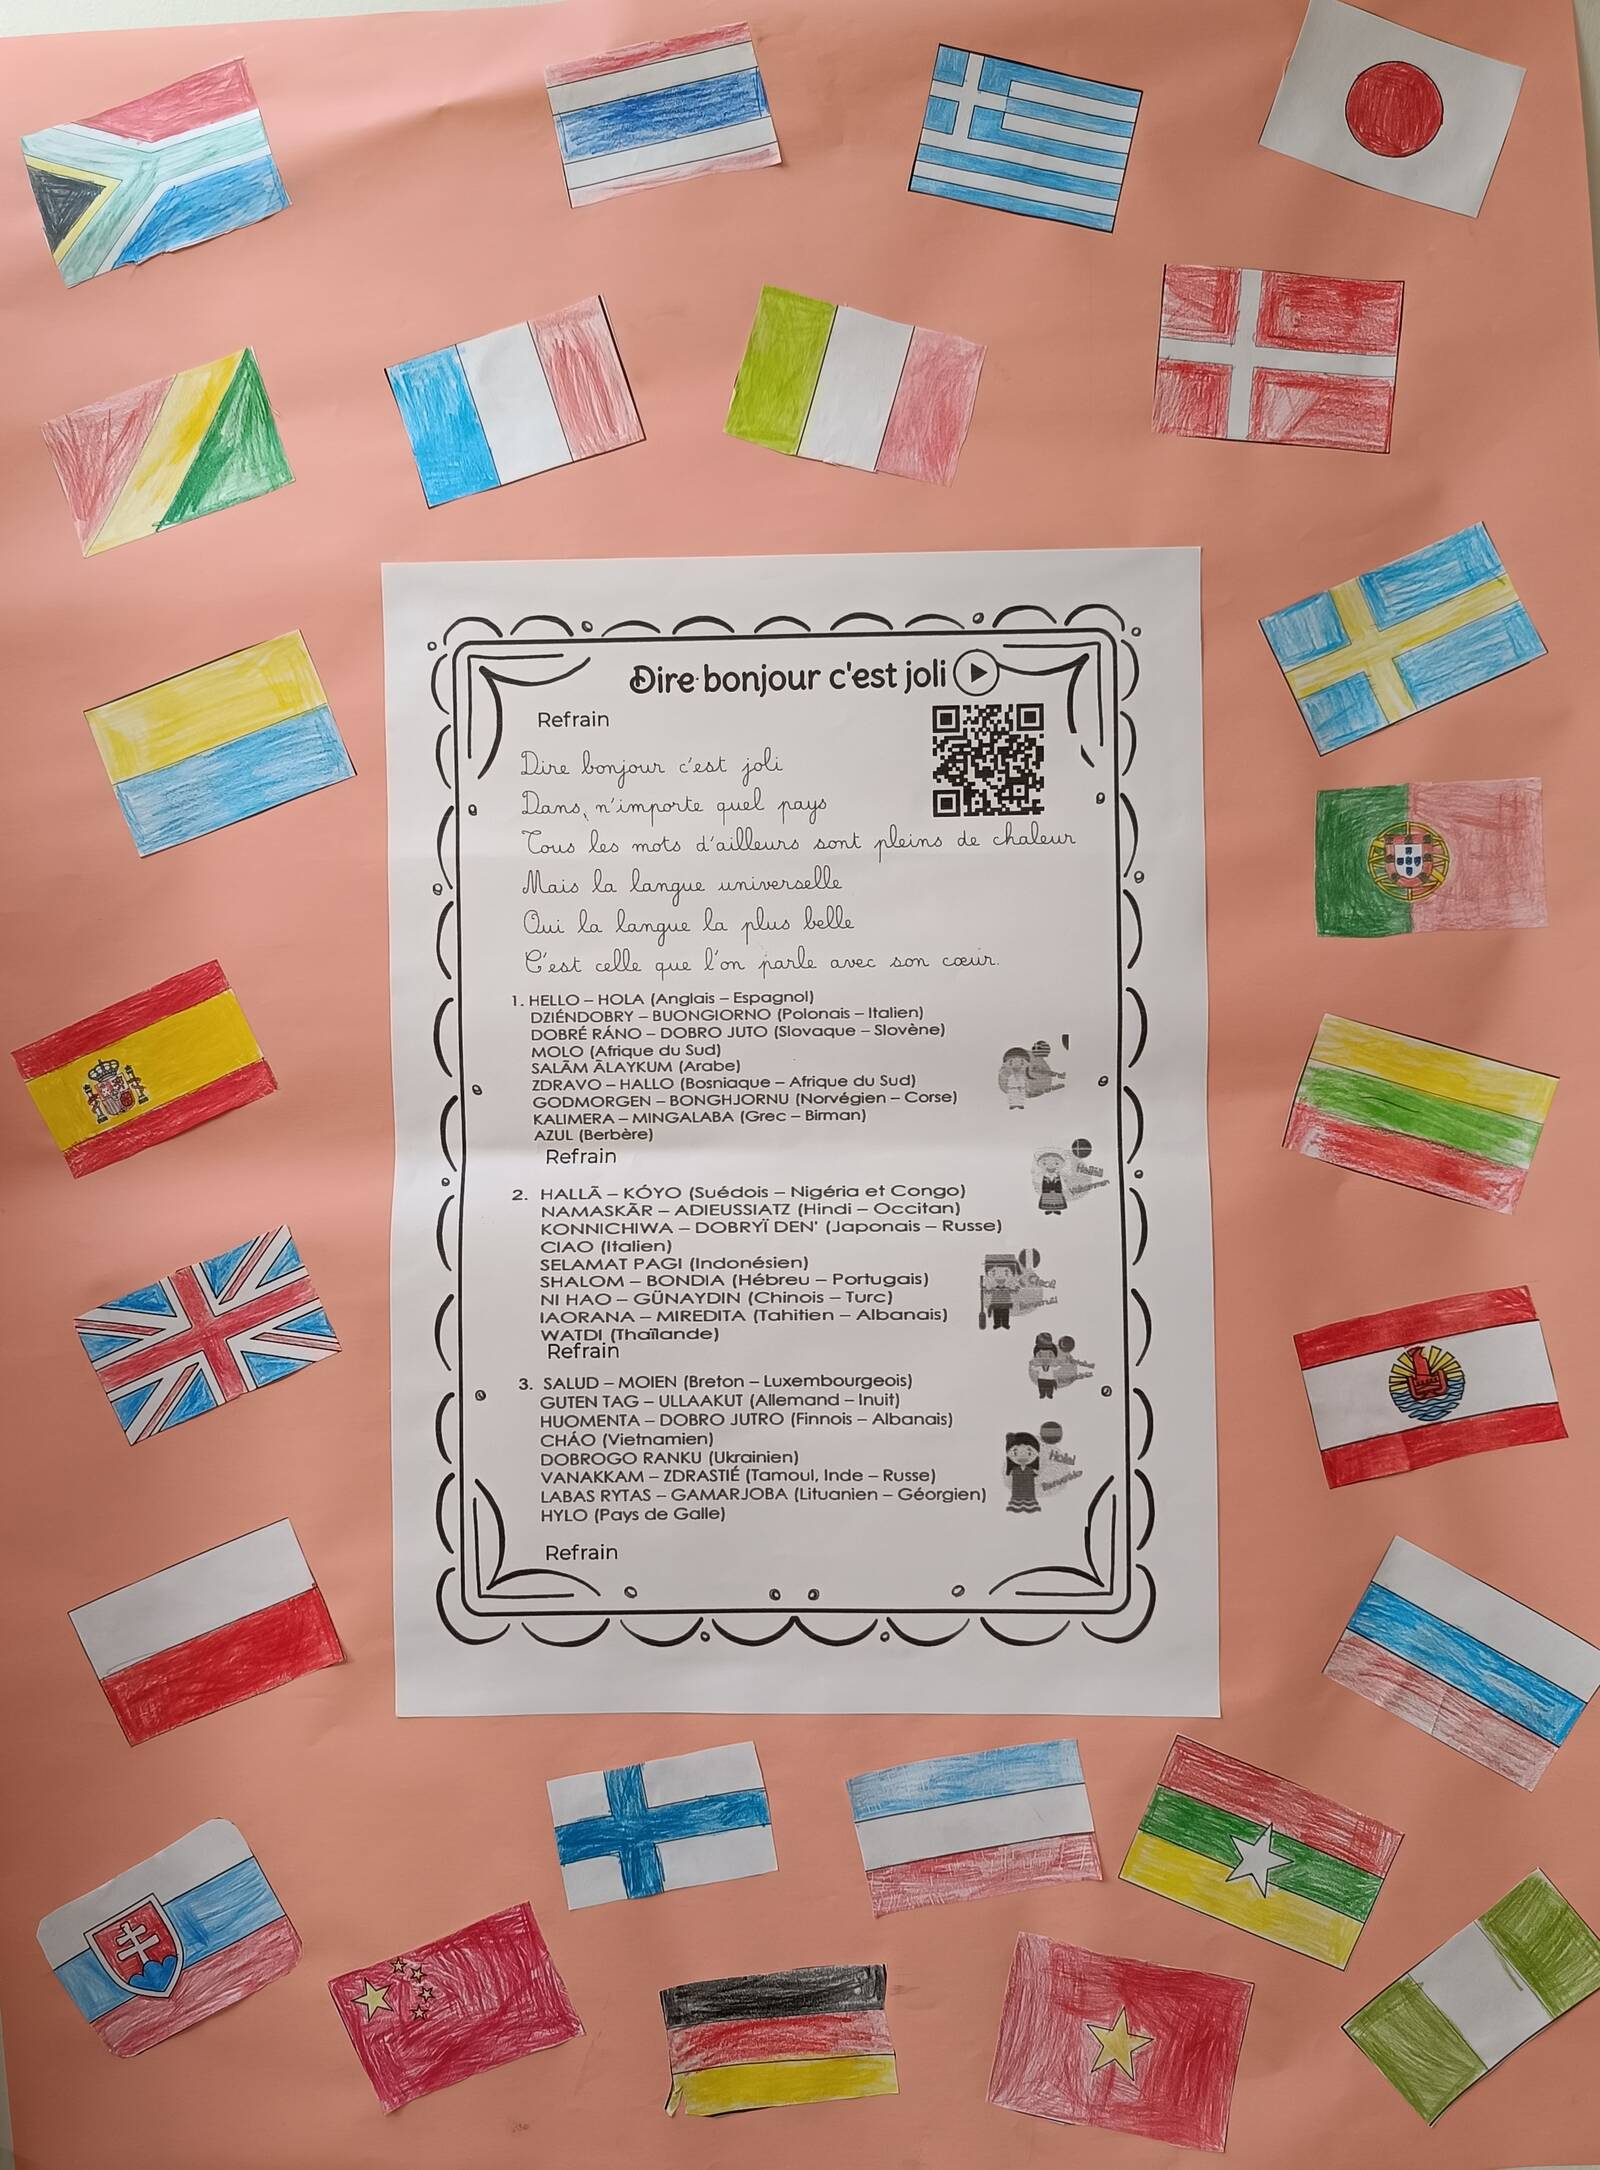 Dire bonjour c'est joli
Refrain
Dire bonjour c'est joli
Dans n'importe quel pays
Tous les mots d'ailleurs sont pleins de chaleur
Mais la langue universelle
Oui la langue la plus belle
C'est celle que l'on parle avec son cœur.
1. HELLO – HOLA (Anglais – Espagnol)
DZIÉNDOBRY – BUONGIORNO (Polonais – Italien)
DOBRÉ RÁNO – DOBRO JUTO (Slovaque – Slovène)
MOLO (Afrique du Sud)
SALÃM ÃLAYKUM (Arabe)
ZDRAVO – HALLO (Bosniaque – Afrique du Sud)
GODMORGEN – BONGHJORNU (Norvégien – Corse)
KALIMERA – MINGALABA (Grec – Birman)
AZUL (Berbère)
Refrain
2. HALLÃ – KÓYO (Suédois – Nigéria et Congo)
NAMASKÃR – ADIEUSSIATZ (Hindi – Occitan)
KONNICHIWA – DOBRYÏ DEN' (Japonais – Russe)
CIAO (Italien)
SELAMAT PAGI (Indonésien)
SHALOM – BONDIA (Hébreu – Portugais)
NI HAO – GÜNAYDIN (Chinois – Turc)
IAORANA – MIREDITA (Tahitien – Albanais)
WATDI (Thaïlande)
Refrain
3. SALUD – MOIEN (Breton – Luxembourgeois)
GUTEN TAG – ULLAAKUT (Allemand – Inuit)
HUOMENTA – DOBRO JUTRO (Finnois – Albanais)
CHÁO (Vietnamien)
DOBROGO RANKU (Ukrainien)
VANAKKAM – ZDRASTIÉ (Tamoul, Inde – Russe)
LABAS RYTAS – GAMARJOBA (Lituanien – Géorgien)
HYLO (Pays de Galle)
Refrain
Hola!